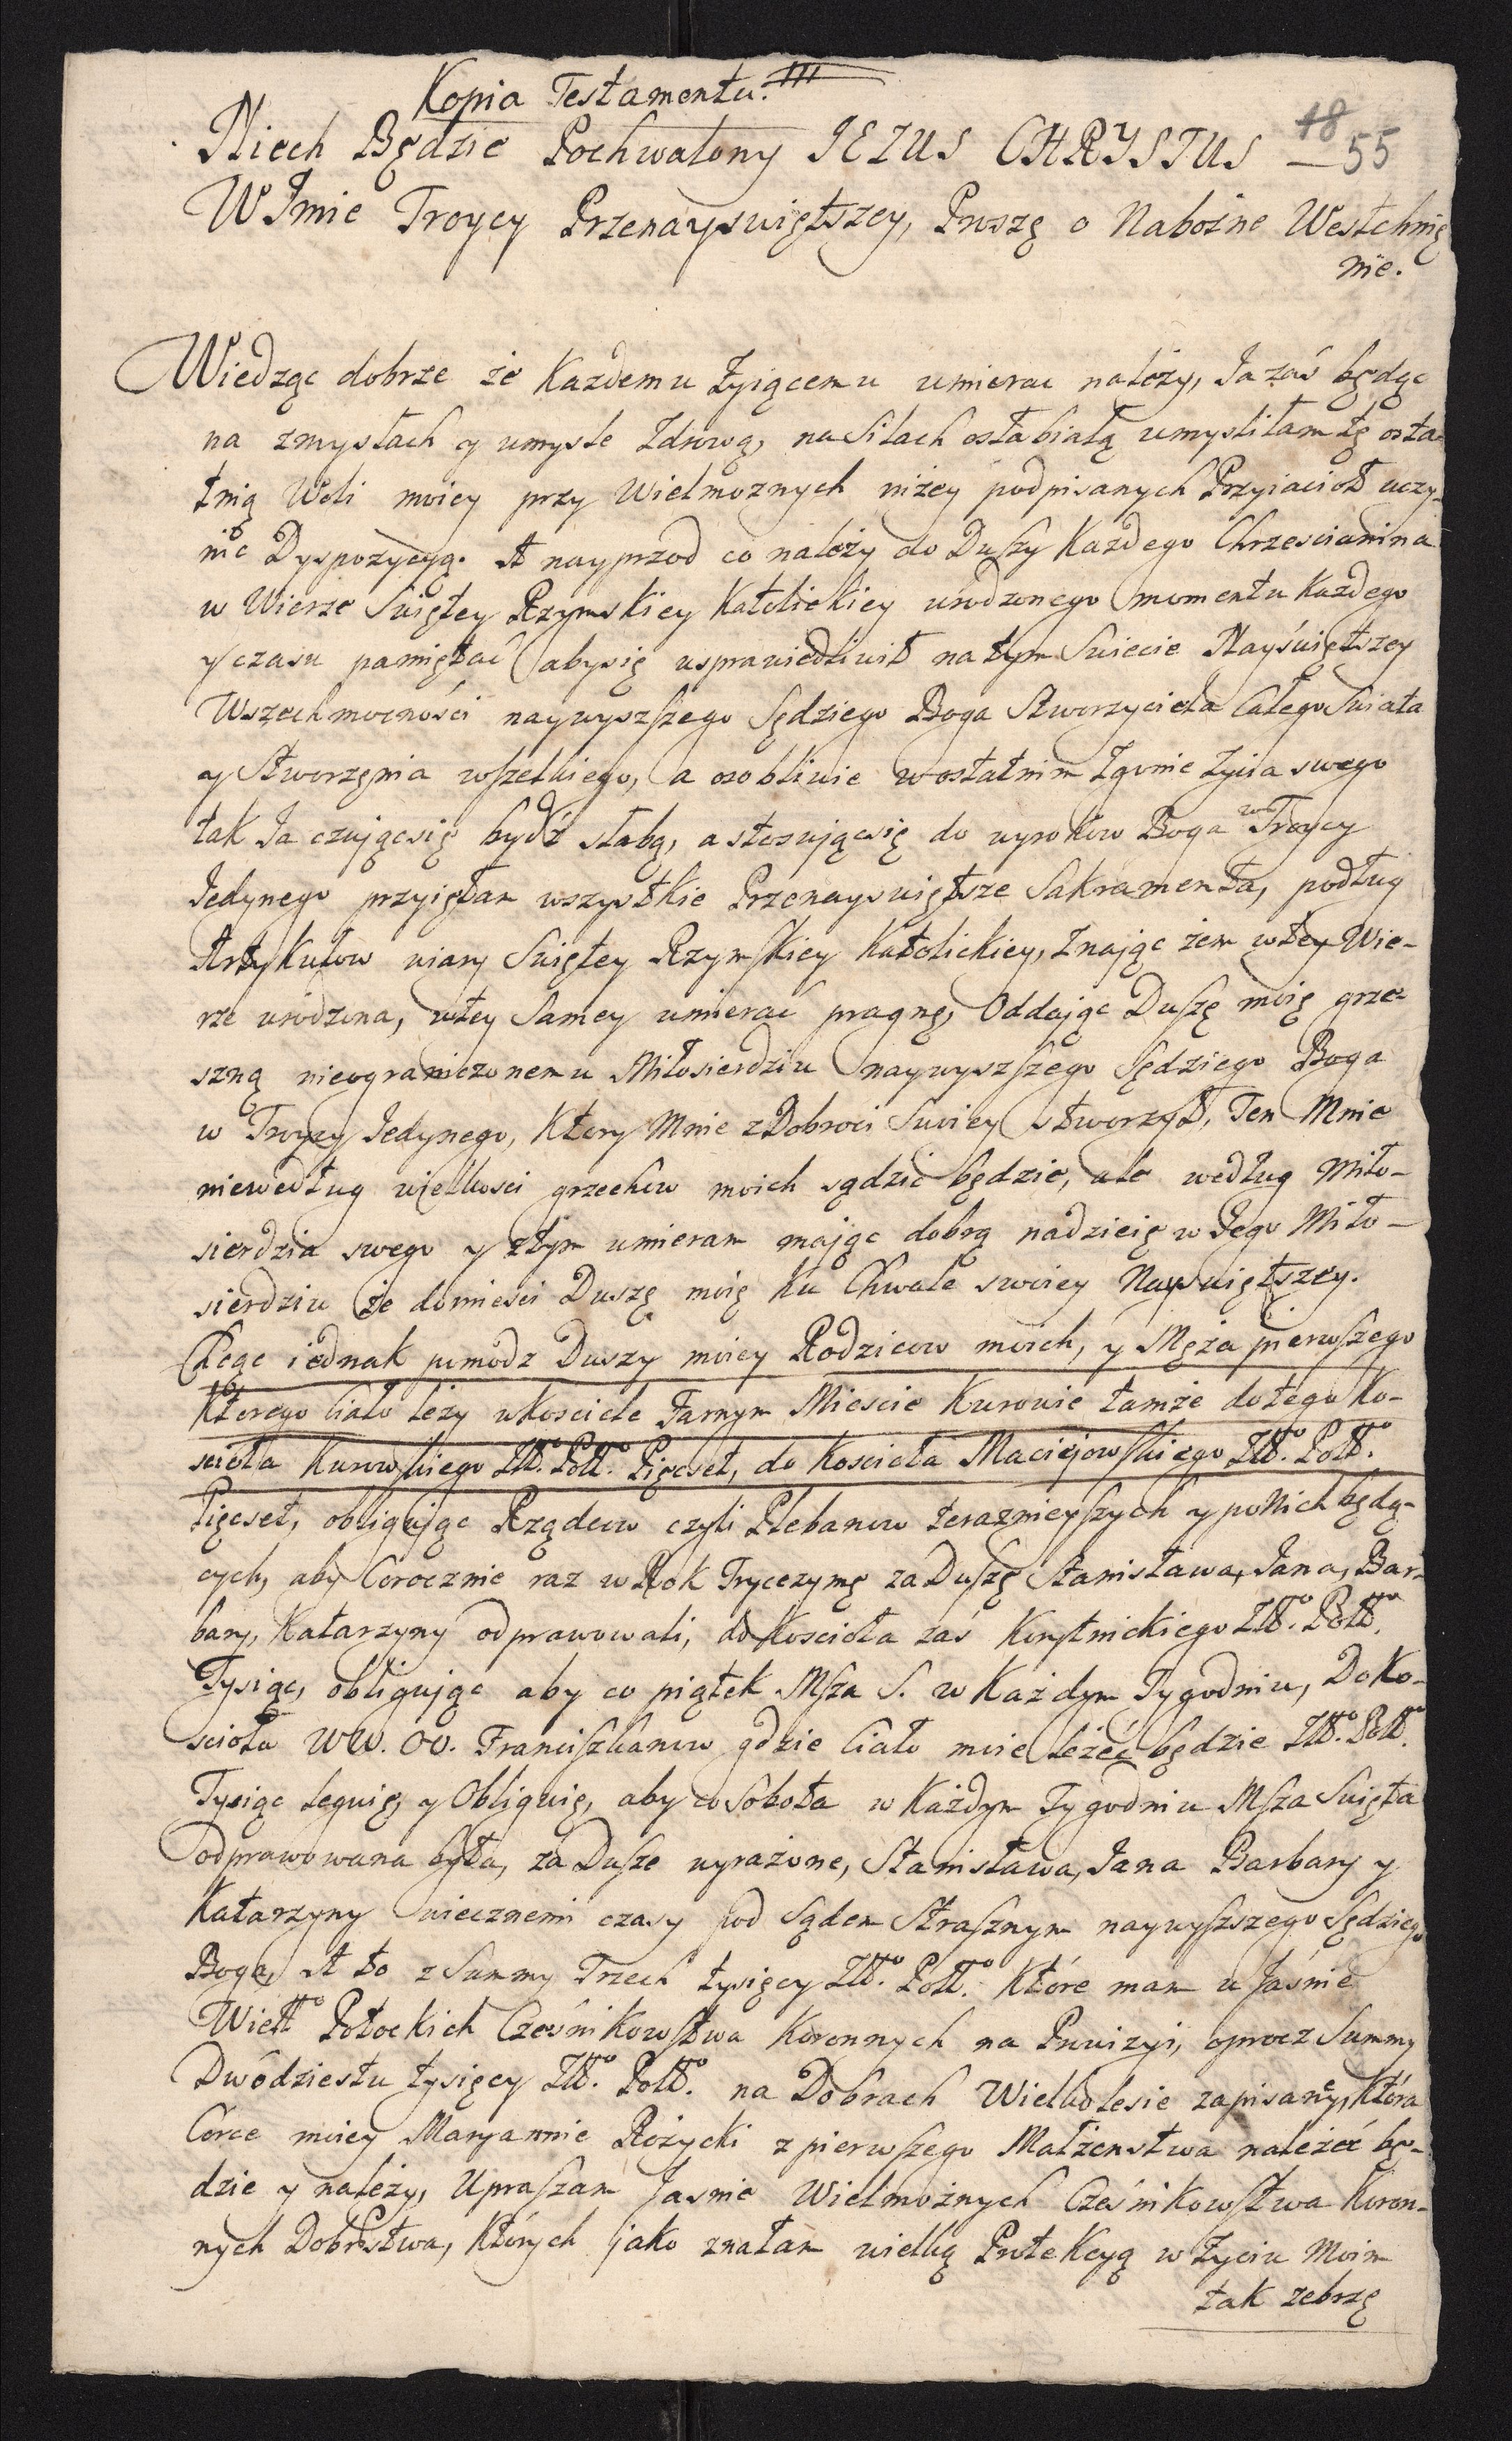 Kopia Testamentu.
18
Niech Będzie Pochwalony JEZUS CHRYSTUS — 55
W Imie Troycy Przenayswiętszey, Proszę o Nabożne Westchnię
nie.
Wiedząc dobrze że Każdemu Żyiącemu umierac należy, Ja zaś będąc
na zmysłach y umysle Zdrową, na Siłach osłabiałą umysliłam tę osta-
tnią Woli moiey przy Wielmoznych niżey podpisanych Przyiacioł uczy-
nić Dyspozycyą. A nayprzod co należy do Duszy Każdego Chrzescianina
w Wierze Swiętey Rzymskiey Katolickiey urodzonego momentu Każdego
y czasu pamiętać aby się usprawiedliwił na tym Swiecie Nayświętszey
Wszechmocności naywyszszego Sędziego Boga Stworzyciela Całego Swiata
y Stworzęnia wszelkiego, a osobliwie w ostatnim Zgonie Życia swego
tak Ja czując się bydź słabą, a stosując się do wyroków Boga w Troycy
Jedynego przyięłam wszystkie Przenayswiętsze Sakramenta, podług
Artykułow wiary Swiętey Rzymskiey Katolickiey, Znając żem w tey Wie-
rze urodzona, w tey Samey umierać pragnę, Oddając Duszę moię grze-
szną nieograniczonemu Miłosierdziu naywyszszego Sędziego Boga
w Troycy Jedynego, Ktory Mnie z Dobroci Swoiey stworzył, Ten Mnie
niewedług wielkosci grzechów moich sądzić będzie, ale według Miło-
sierdzia swego y z tym umieram mając dobrą nadzieię w Jego Miło-
sierdziu że domiesci Duszę moię Ku Chwale swoiey Nayswiętszey.
Chcąc iednak pomodz Duszy moiey Rodzicow moich, y Męża pierwszego
Ktorego Ciało leży w Kosciele Farnym Miescie Kurowie tamże do tego Ko-
scioła Kurowskiego Złł. Poll. Pięcset, do Koscioła Maciejowskiego Złł. Poll.
Pięcset, obligując Rządcow czyli Plebanow terazniejszych y po Nich będą-
cych, aby Corocznie raz w Rok Trycezymę za Duszę Stanisława, Jana, Bar-
bary, Katarzyny odprawowali, do Koscioła zaś Korytnickiego Złł. Poll.
Tysiąc, obligując aby co piątek Msza S. w Każdym Tygodniu, Do Ko-
scioła WW. OO. Franciszkanow gdzie Ciało moie leżeć będzie Złł. Poll.
Tysiąc leguię, y Obliguię, aby co Sobota w Każdym Tygodniu Msza Swięta
odprawowana była, za Dusze wyrażone, Stanisława, Jana Barbary y
Katarzyny wiecznemi czasy pod Sądem Strasznym naywyszszego Sędziego
Boga, A to z Summy Trzech tysięcy Złł. Poll. Które mam u Jaśnie
Wiell Potockich Cześnikowstwa Koronnych na Prowizyi, oprocz Summy
Dwódziestu tysięcy Złł. Poll. na Dobrach Wielkolesie zapisaney, Która
Córce moiey Maryannie Rożycki z pierwszego Małżenstwa należeć bę-
dzie y należy, Upraszam Jasnie Wielmożnych Cześnikowstwa Koron-
nych Dobrstwa, Których jako znałam wielką Protekcyą w Życiu Moim
tak żebrzę